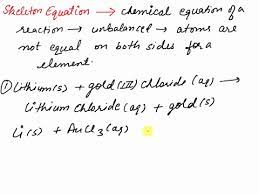 Skeleton Equation → chemical equation of a
reaction → unbalanced → atoms are
not equal on both sides for a
element.
① Lithium(s) + gold(III) Chloride (aq) →
Lithium Chloride (aq) + gold(s)
Li(s) + AuCl3(aq)